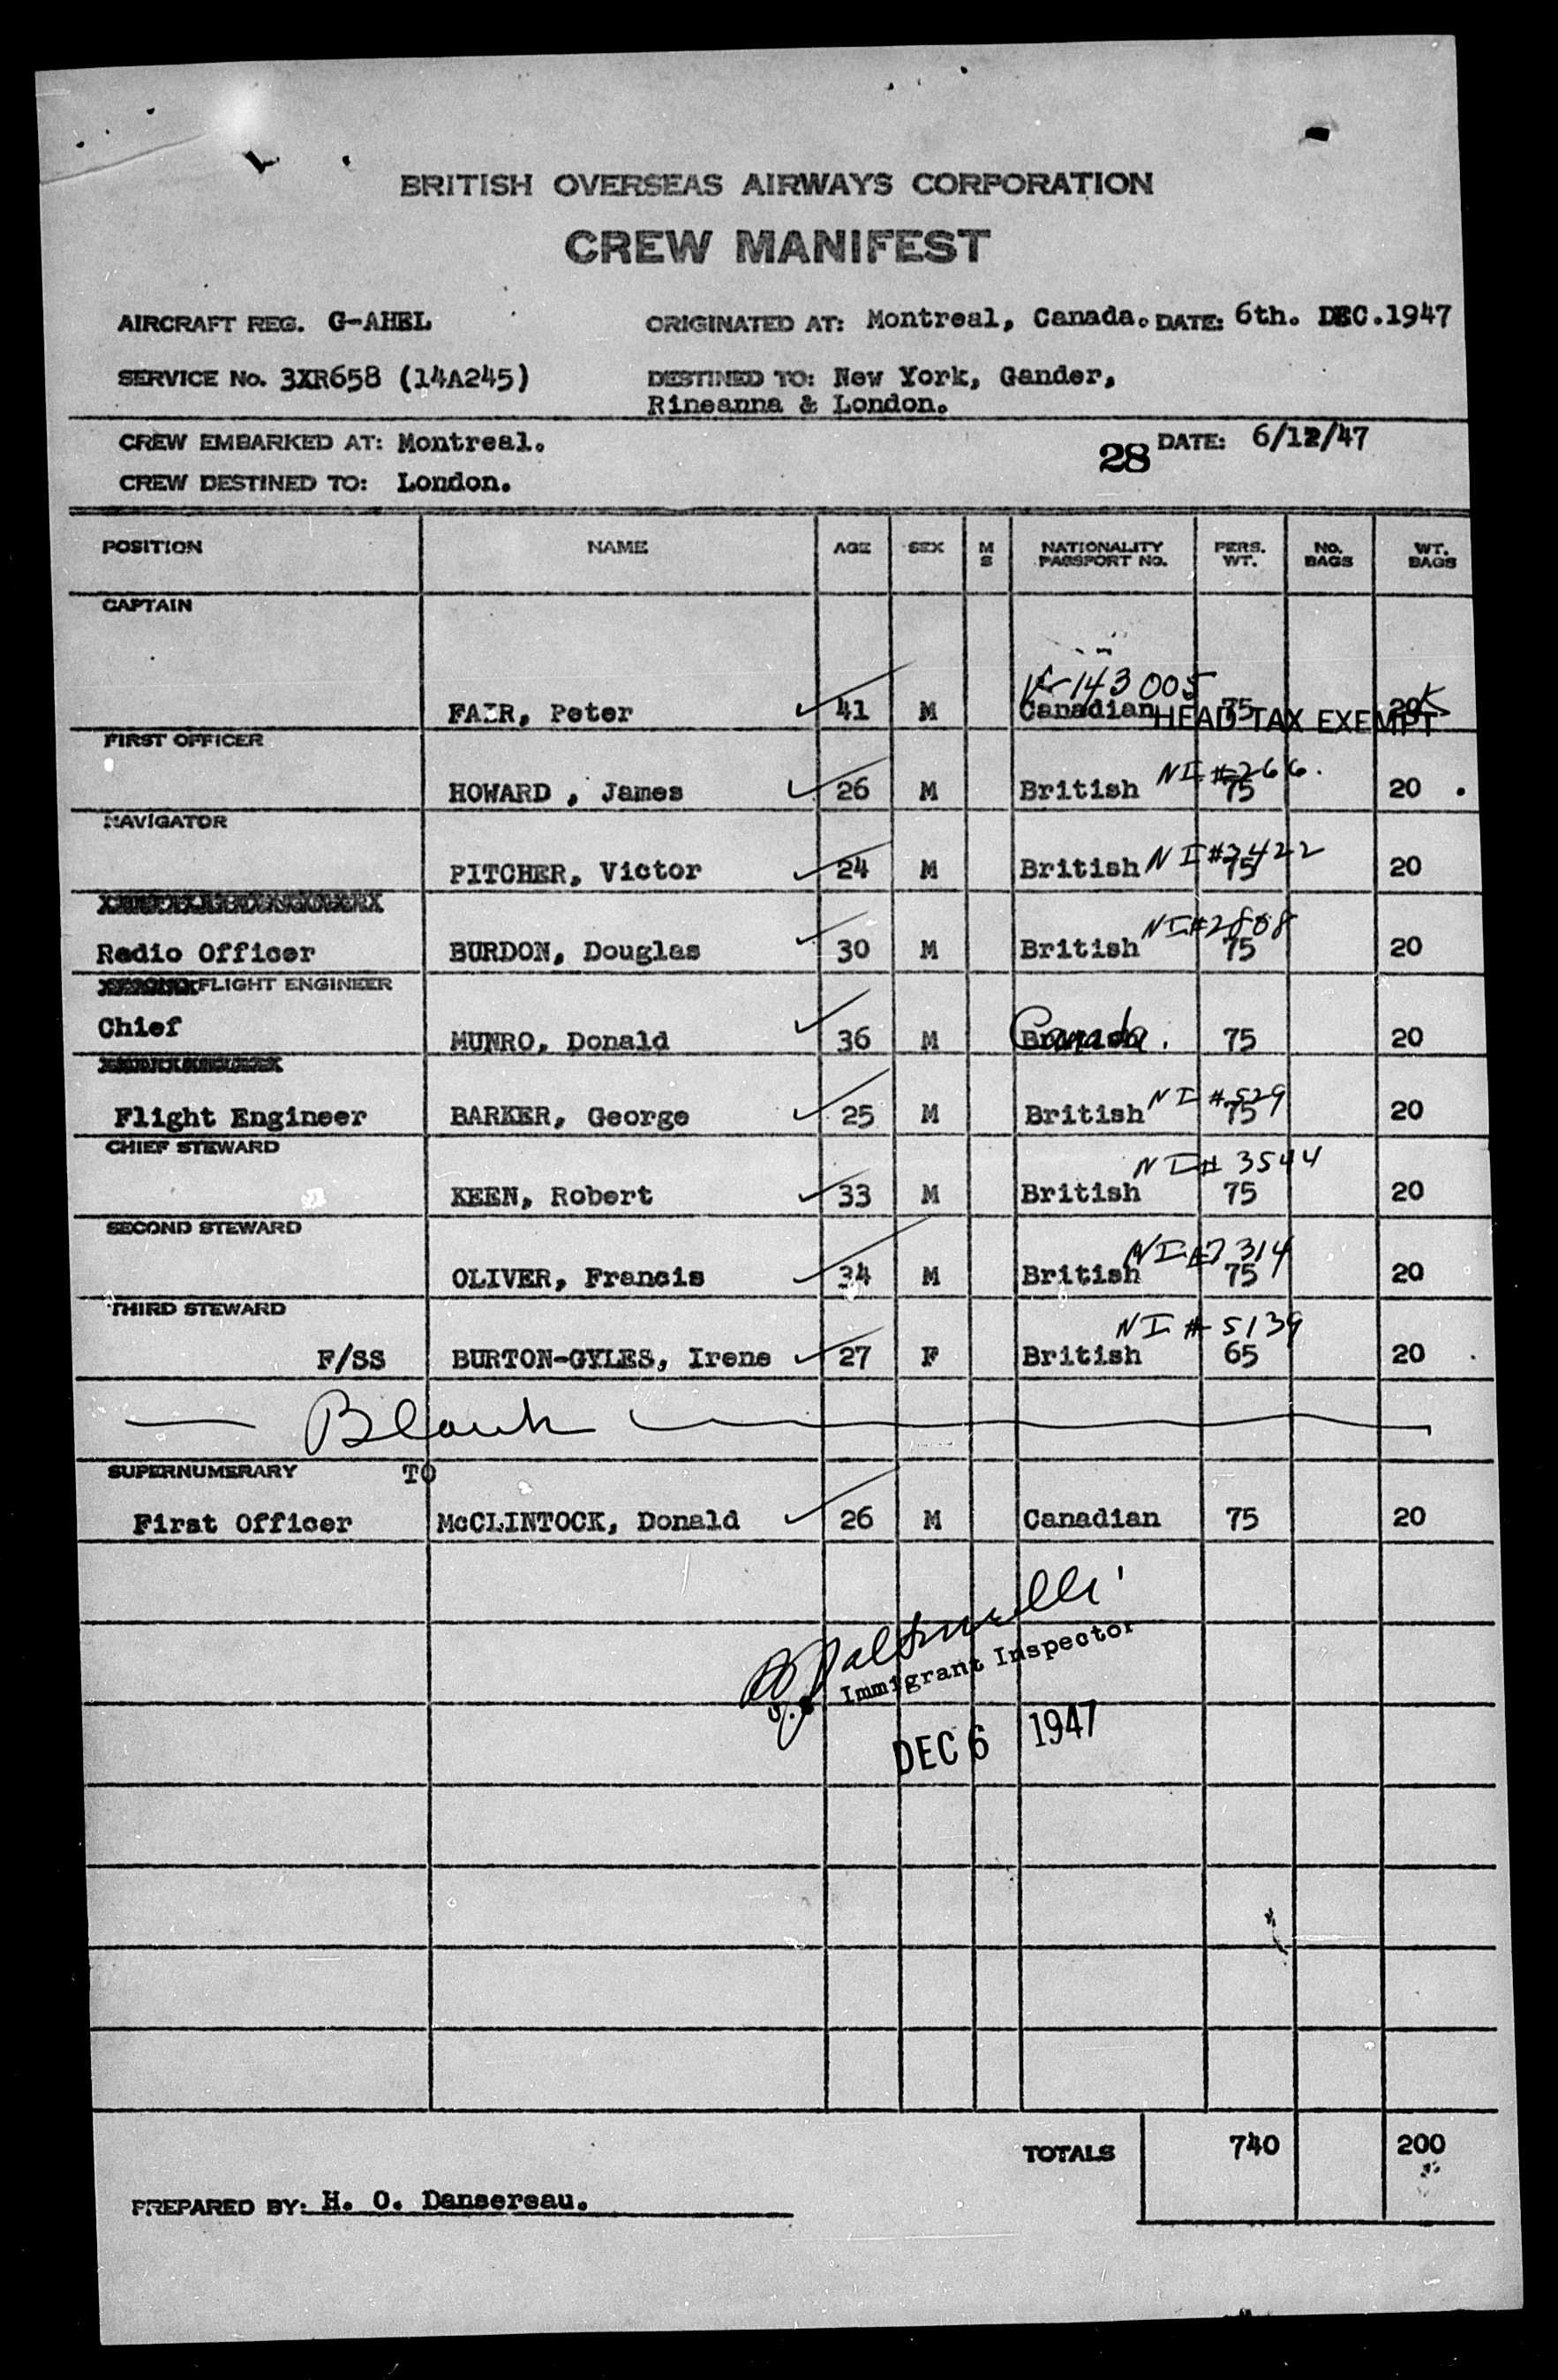 BRITISH OVERSEAS AIRWAYS CORPORATION
CREW MANIFEST
AIRCRAFT REG. G-AHEL ORIGINATED AT: Montreal, Canada. DATE: 6th. DEC.1947
SERVICE No. 3XR658 (14A245) DESTINED TO: New York, Gander,
Rineanna & London.
CREW EMBARKED AT: Montreal. 28 DATE: 6/12/47
CREW DESTINED TO: London.
POSITION NAME AGE SEX M S NATIONALITY PASSPORT NO. PERS. WT. NO. BAGS WT. BAGS
CAPTAIN
143005
FAIR, Peter 41 M Canadian 75 20 K
HEAD TAX EXEMPT
FIRST OFFICER
NI #266.
HOWARD , James 26 M British 75 20
NAVIGATOR
NI #2422
PITCHER, Victor 24 M British 75 20
NI #2808
Radio Officer BURDON, Douglas 30 M British 75 20
FLIGHT ENGINEER
Chief MUNRO, Donald 36 M Canada. 75 20
NI #529
Flight Engineer BARKER, George 25 M British 75 20
CHIEF STEWARD
NI# 3544
KEEN, Robert 33 M British 75 20
SECOND STEWARD
NI #7314
OLIVER, Francis 34 M British 75 20
THIRD STEWARD
NI # 5139
F/SS BURTON-GYLES, Irene 27 F British 65 20
Blank
SUPERNUMERARY TO
First Officer McCLINTOCK, Donald 26 M Canadian 75 20
Immigrant Inspector
DEC 6 1947
TOTALS 740 200
PREPARED BY: H. O. Dansereau.